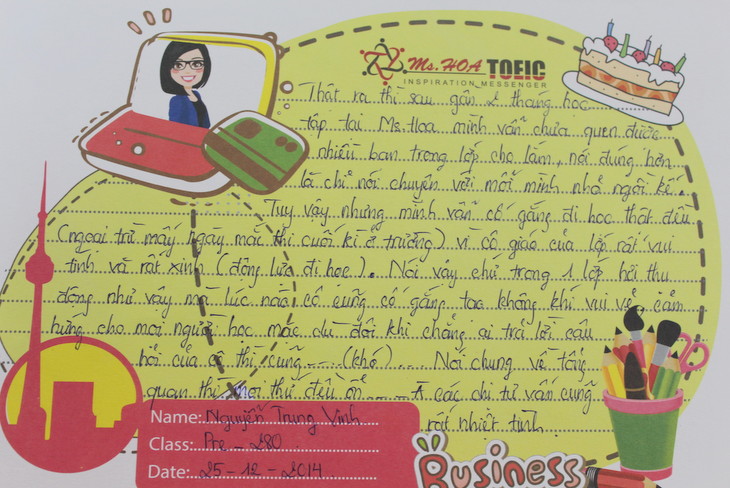 Ms. HOA TOEIC
INSPIRATION MESSENGER
Thật ra thì sau gần 2 tháng học
tập tại Ms.Hoa mình vẫn chưa quen được
nhiều bạn trong lớp cho lắm, nói đúng hơn
là chỉ nói chuyện với mỗi mình nhỏ ngồi kế.
Tuy vậy nhưng mình vẫn cố gắng đi học thật đều
(ngoại trừ mấy ngày mắc thi cuối kì ở trường) vì cô giáo của lớp rất vui
tính và rất xinh (động lực đi học). Nói vậy chứ trong 1 lớp hơi thụ
động như vậy mà lúc nào cô cũng cố gắng tạo không khí vui vẻ, cảm
hứng cho mọi người học mặc dù đôi khi chẳng ai trả lời câu
hỏi của cô thì cũng ... (khó)... Nói chung về tổng
quan thì mọi thứ đều ổn ... À các chị tư vấn cũng
rất nhiệt tình
Name: Nguyễn Trung Vinh
Class: Pre - 280
Date: 25 - 12 - 2014
Business